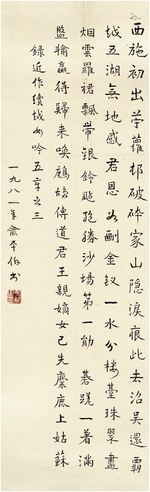 西施初出苧蘿邨破碎家山隱淚痕此去沼吳還霸
越五湖無地感君恩 劚金釵一水分樓臺珠翠盡
烟雲羅裙飄帶銀鈴 勝沙場第一勛 碁蹉一着滿
盤輸贏得歸來喚 鴣傳道君王親嫡女已先麋鹿上姑蘇
錄近作續城南吟五章之三
一九八一年俞平伯書